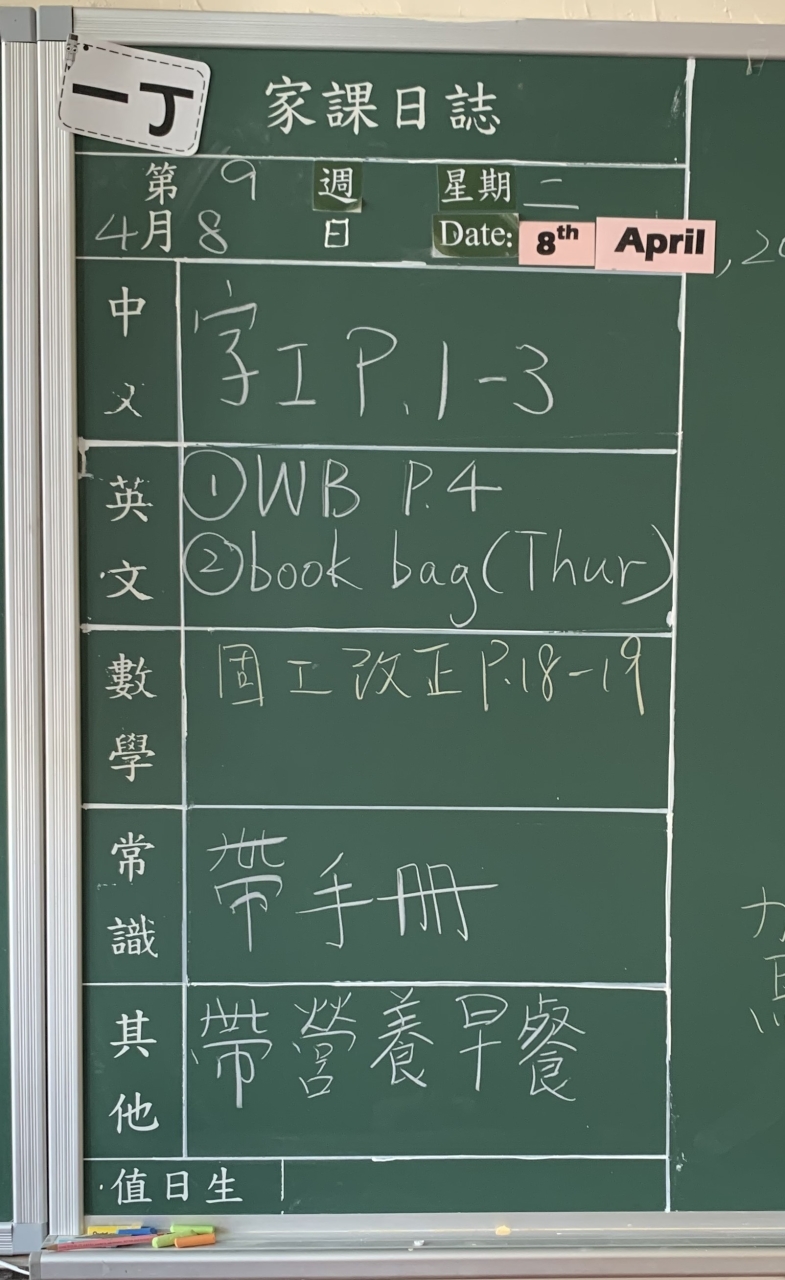 一丁
家課日誌
第 9 週 星期 二
4月 8 日 Date: 8th April, 20
中文 字工 P.1-3
英文 ① WB P.4
② book bag (Thur)
數學 固工改正 P.18-19
常識 帶手冊
其他 帶營養早餐
值日生